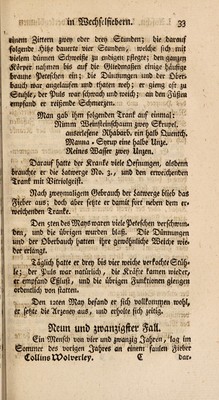 in Wechselfiebern. 33
einem Zittern zwey oder drey Stunden; die darauf
folgende Hitze dauerte vier Stunden, welche sich mit
vielem dünnen Schweiße zu endigen pflegte; den ganzen
Körper nahmen bis auf die Gliedmaßen einige häufige
braune Petechien ein; die Dünnungen und der Ober-
bauch war angelaufen und thaten weh; er gieng oft zu
Stuhle, der Puls war schwach und weich; an den Füßen
empfand er reißende Schmerzen.
Man gab ihm folgenden Trank auf einmal:
Nimm Weinsteinschaum zwey Skrupel.
auserlesene Rhabarb. ein halb Quentch.
Manna-Syrup eine halbe Unze.
Reines Wasser zwey Unzen.
Darauf hatte der Kranke viele Oefnungen, alsdenn
brauchte er die Latwerge No. 3, und den erweichenden
Trank mit Vitriolgeist.
Nach zweymaligem Gebrauch der Latwerge blieb das
Fieber aus; doch aber setzte er damit fort neben dem er-
weichenden Tranke.
Den 5ten des Mays waren viele Petechien verschwun-
den, und die übrigen wurden blaß. Die Dünnungen
und der Oberbauch hatten ihre gewöhnliche Weiche wie-
der erlangt.
Täglich hatte er drey bis vier weiche verkochte Stüh-
le; der Puls war natürlich, die Kräfte kamen wieder,
er empfand Eßlust, und die übrigen Funktionen giengen
ordentlich von statten.
Den 12ten May befand er sich vollkommen wohl,
er setzte die Arzeney aus, und erholte sich zeitig.
Neun und zwanzigster Fall.
Ein Mensch von vier und zwanzig Jahren, lag im
Sommer des vorigen Jahres an einem faulen Fieber
Collins Wolverley. C dar-